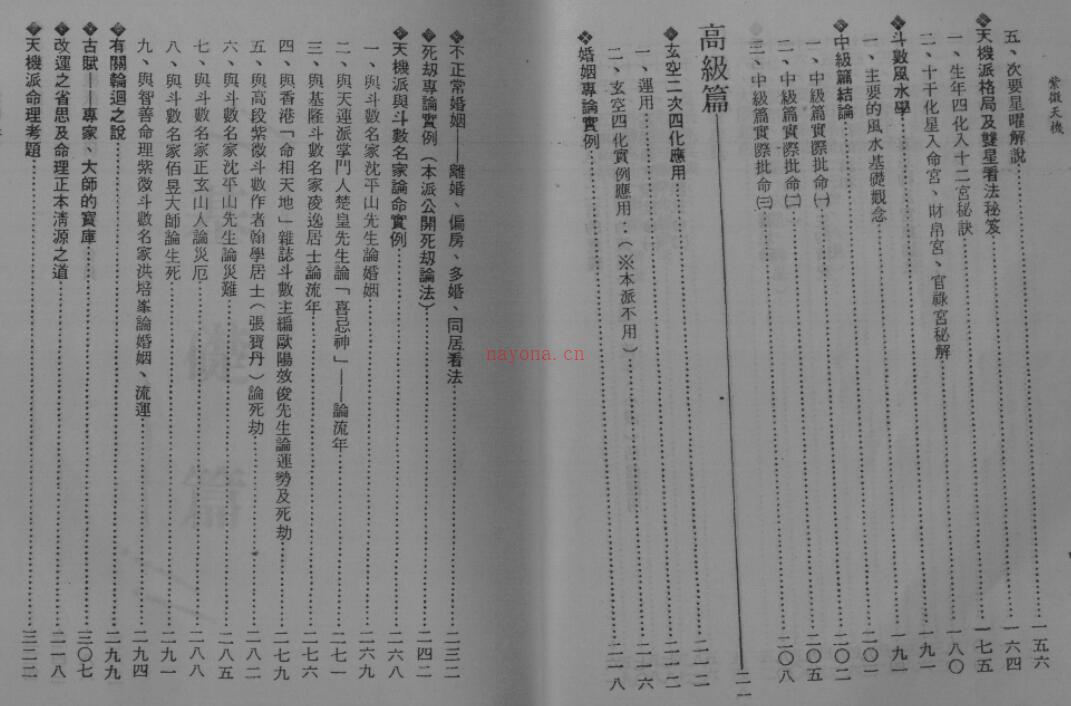 紫微天機
五、次要星曜解說……一五六
一六四
❖天機派格局及雙星看法秘笈……一七五
一、生年四化入十二宮秘訣……一八〇
二、十干化星入命宮、財帛宮、官祿宮秘解……一九一
❖斗數風水學……一九一
一、主要的風水基礎觀念……二〇一
❖中級篇結論……二〇二
一、中級篇實際批命㈠……二〇五
二、中級篇實際批命㈡……二〇八
三、中級篇實際批命㈢
高級篇……二一一
❖玄空二次四化應用……二一二
一、運用……二一六
二、玄空四化實例應用：（※本派不用）……二一八
❖婚姻專論實例
❖不正常婚姻——離婚、偏房、多婚、同居看法……二三二
❖死劫專論實例（本派公開死劫論法）……二四二
❖天機派與斗數名家論命實例……二六八
一、與斗數名家沈平山先生論婚姻……二六九
二、與天運派掌門人楚皇先生論「喜忌神」——論流年……二七一
三、與基隆斗數名家陵逸居士論流年……二七六
四、與香港「命相天地」雜誌斗數主編歐陽效俊先生論運勢及死劫……二七九
五、與高段紫微斗數作者翰學居士（張寶丹）論死劫……二八二
六、與斗數名家沈平山先生論災難……二八五
七、與斗數名家正玄山人論災厄……二八八
八、與斗數名家佰昱大師論生死……二九一
九、與智善命理紫微斗數名家洪培峯論婚姻、流運……二九四
❖有關輪迴之說……二九九
❖古賦——專家、大師的寶庫……三〇七
❖改運之省思及命理正本清源之道……二一八
❖天機派命理考題……三二二
nayona.cn